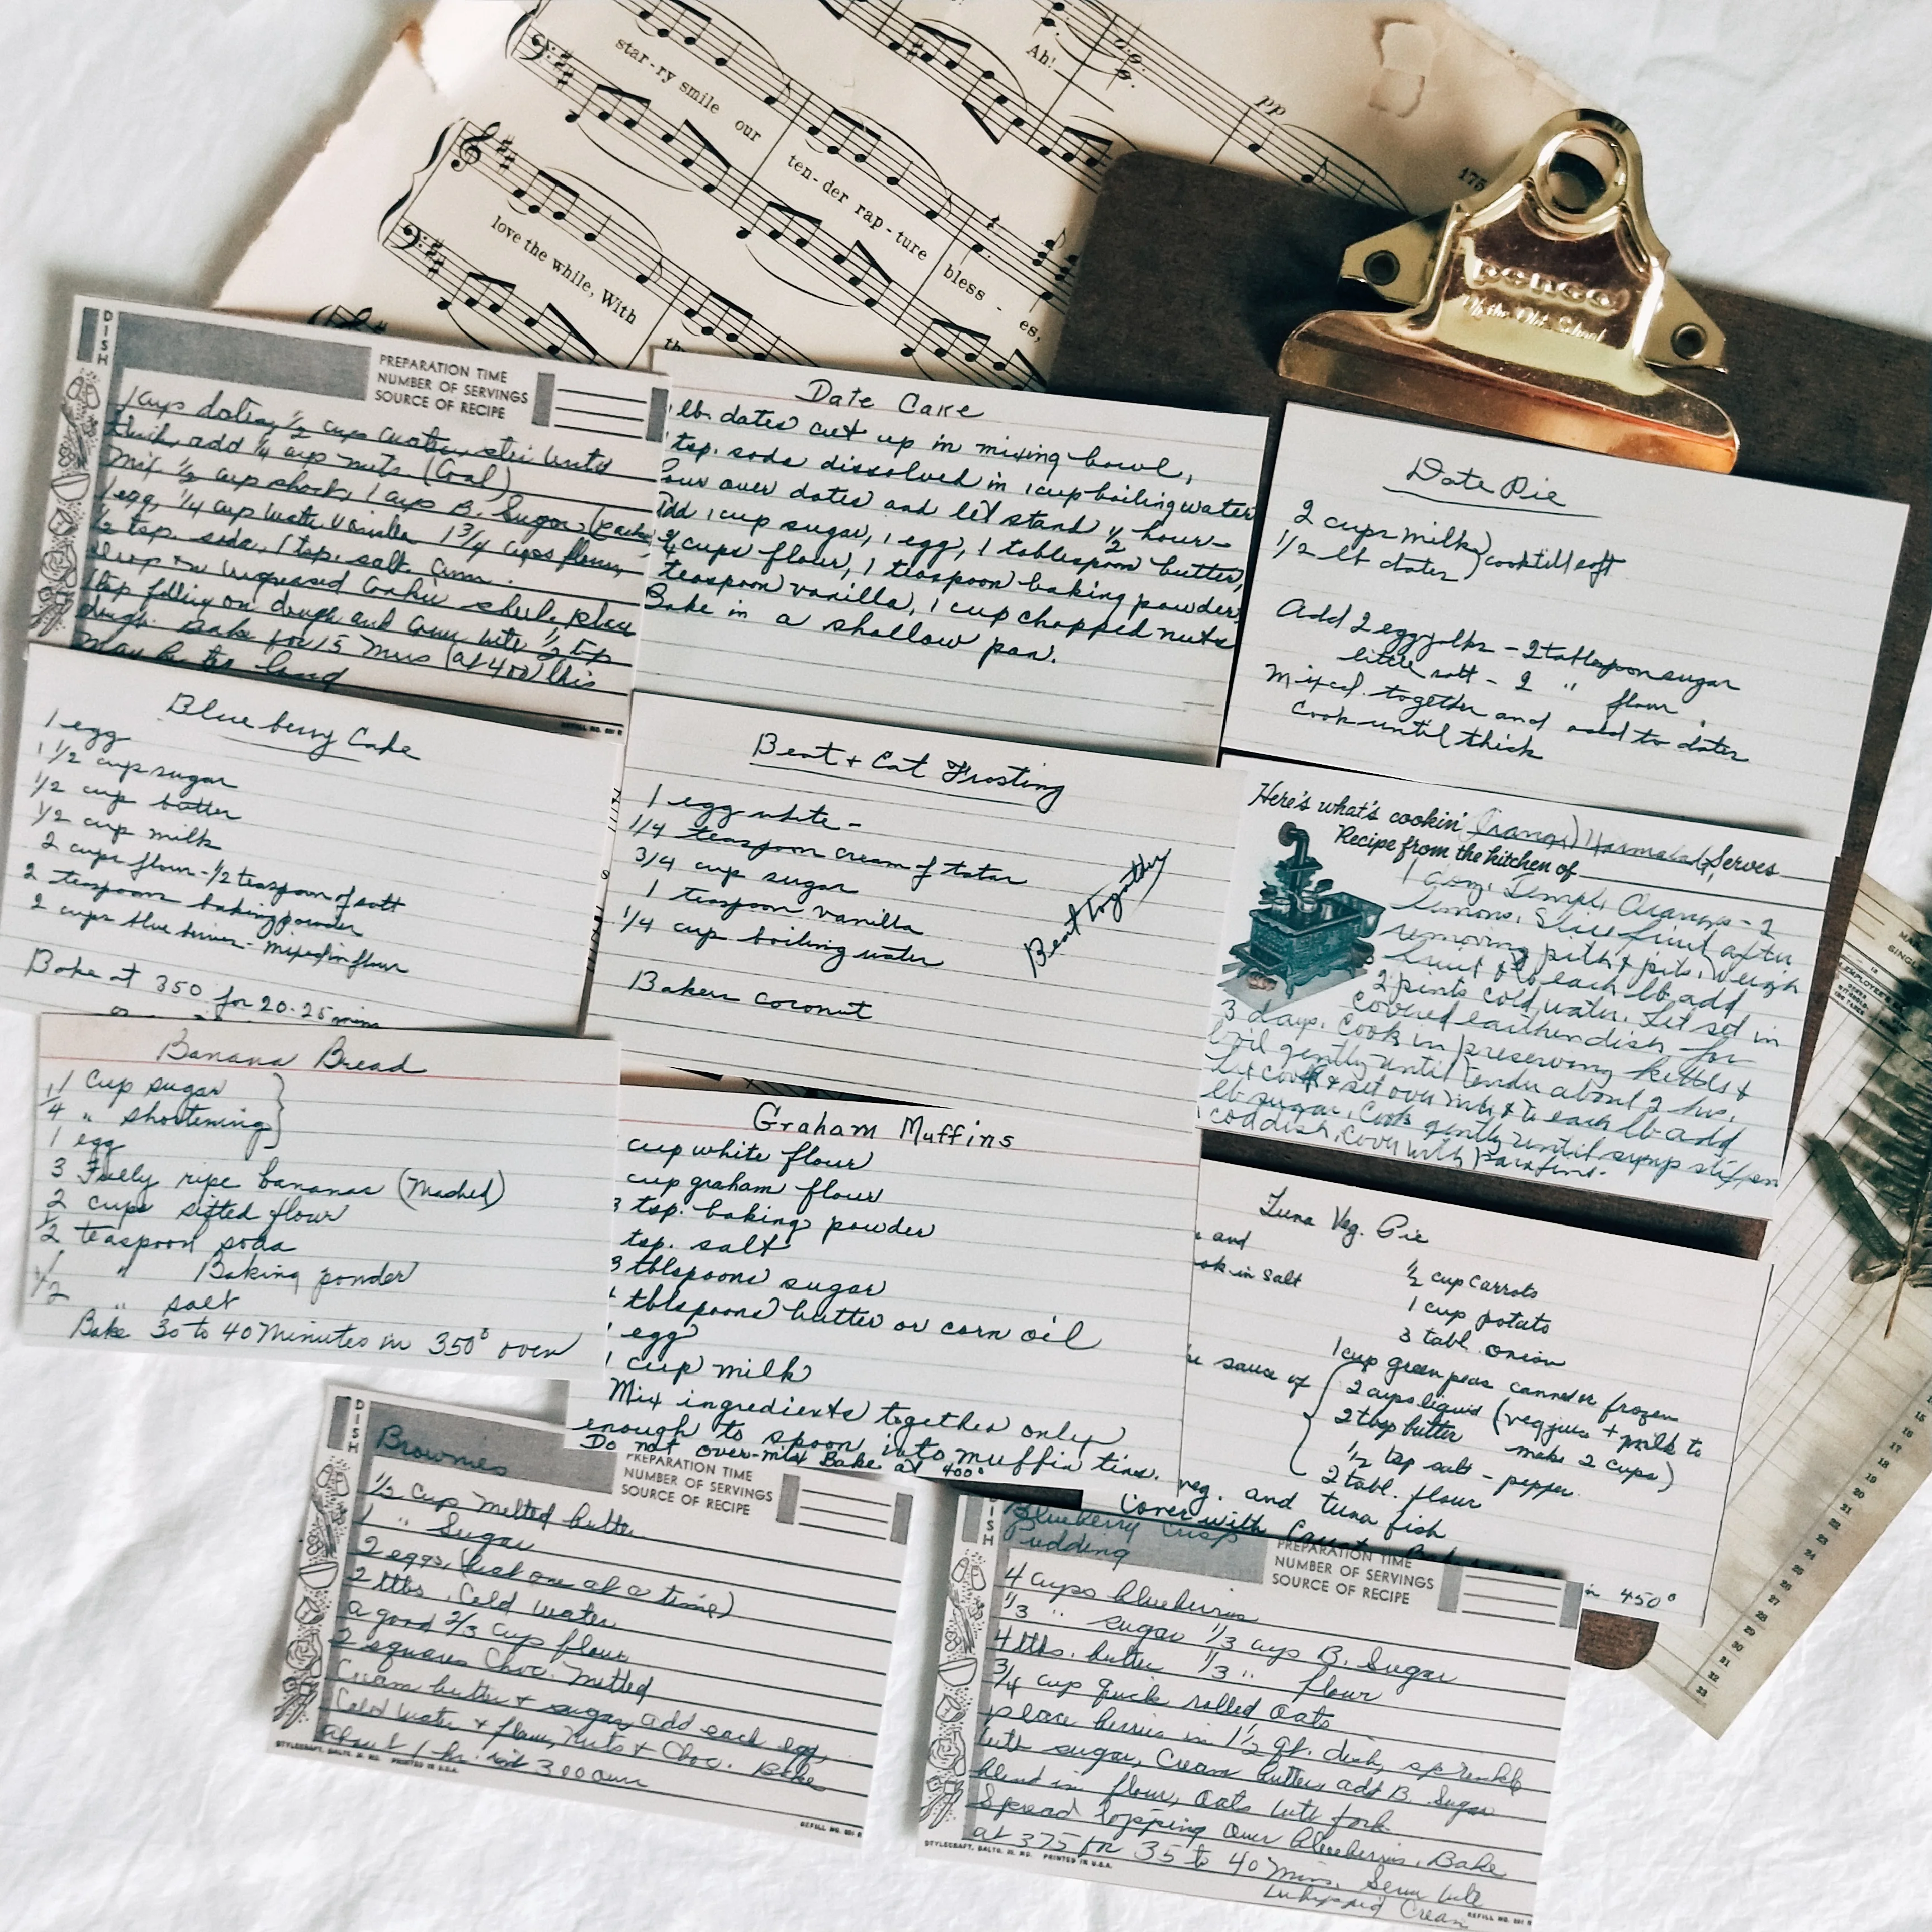 star-ry smile our
ten-der rap-ture bless - es,
love the while, With
Ah!
pp
175
DISH
PREPARATION TIME
NUMBER OF SERVINGS
SOURCE OF RECIPE
cups dates, 1/2 cup water, stir until
thick, add 1/4 cup nuts (Cool)
Mix 1/2 cup short, 1 cup B. Sugar (pack
1 egg, 1/4 cup water vanilla 1 3/4 cups flour,
1/2 tsp. soda, 1 tsp. salt. Cinn.
drop on ungreased cookie sheet, place
tsp filling on dough and cover with 1/2 tsp
dough. Bake for 15 Mins (at 400) this
may be too long
REFILL NO. 501 R
Date Cake
lb. dates cut up in mixing bowl,
tsp. soda dissolved in 1 cup boiling water
Pour over dates and let stand 1/2 hour-
Add 1 cup sugar, 1 egg, 1 tablespoon butter,
cups flour, 1 teaspoon baking powder,
teaspoon vanilla, 1 cup chopped nuts
Bake in a shallow pan.
Date Pie
2 cups milk } cook till soft
1/2 lb dates
Add 2 egg yolks - 2 tablespoon sugar
little salt - 2 " flour.
Mixed together and add to dates
Cook until thick
Blueberry Cake
1 egg
1 1/2 cup sugar
1/2 cup butter
1/2 cup milk
2 cups flour - 1/2 teaspoon of salt
2 teaspoon baking powder
2 cups blue berries - mixed in flour
Bake at 350 for 20-25 mins
Beat + Eat Frosting
1 egg white -
1/4 teaspoon cream of tatar
3/4 cup sugar
1 teaspoon vanilla
1/4 cup boiling water
Beat together
Bakers coconut
Here's what's cookin' Orange Marmalade Serves
Recipe from the kitchen of
1 doz. Temple Oranges - 2
lemons. Slice fruit after
removing pith & pits, weigh
fruit & to each lb add
2 pints cold water. Let set in
covered earthen dish for
3 days. Cook in preserving kettle &
boil gently until tender about 2 hrs.
Let cool & set over nite & to each lb add
lb sugar. Cook gently until syrup stiffen
cold dish, cover with parafine.
Banana Bread
1 Cup sugar
1/4 " shortening
1 egg
3 Fully ripe bananas (Mashed)
2 cups sifted flour
1/2 teaspoon soda
" Baking powder
1/2 " salt
Bake 30 to 40 Minutes in 350° oven
Graham Muffins
cup white flour
cup graham flour
3 tsp. baking powder
tsp. salt
3 tblspoons sugar
tblspoons butter or corn oil
egg
1 cup milk
Mix ingredients together only
enough to spoon into muffin tins.
Do not over-mix Bake at 400°
Tuna Veg. Pie
and
in salt
1/2 cup carrots
1 cup potato
3 tabl. onion
1 cup green peas canned or frozen
sauce of
2 cups liquid (veg juice + milk to
2 tbsp butter make 2 cups)
1/2 tsp salt - pepper
2 tabl. flour
veg. and tuna fish
Cover with Crust
in 450°
DISH
Brownies
PREPARATION TIME
NUMBER OF SERVINGS
SOURCE OF RECIPE
1/3 Cup Melted butter
1 " Sugar
2 eggs, (beat one at a time)
2 tbls. Cold water
a good 2/3 cup flour
2 squares Choc. Melted
Cream butter & sugar, add each egg,
Cold Water & flour, Nuts & Choc. Bake
about 1/2 hr. 300 oven
STYLECRAFT, BALTO. 31, MD. PRINTED IN U.S.A.
REFILL NO. 501 R
DISH
Blueberry Crisp
Pudding
PREPARATION TIME
NUMBER OF SERVINGS
SOURCE OF RECIPE
4 cups blueberries
1/3 " sugar 1/3 cup B. Sugar
4 tbls. butter 1/3 " flour
3/4 cup quick rolled oats
place berries in 1 1/2 qt. dish, sprinkle
with sugar, Cream butter, add B. Sugar
blend in flour, oats with fork.
Spread topping over blueberries. Bake
at 375 for 35 to 40 Mins. Serve with
Whipped Cream
STYLECRAFT, BALTO. 31, MD. PRINTED IN U.S.A.
REFILL NO. 501 R